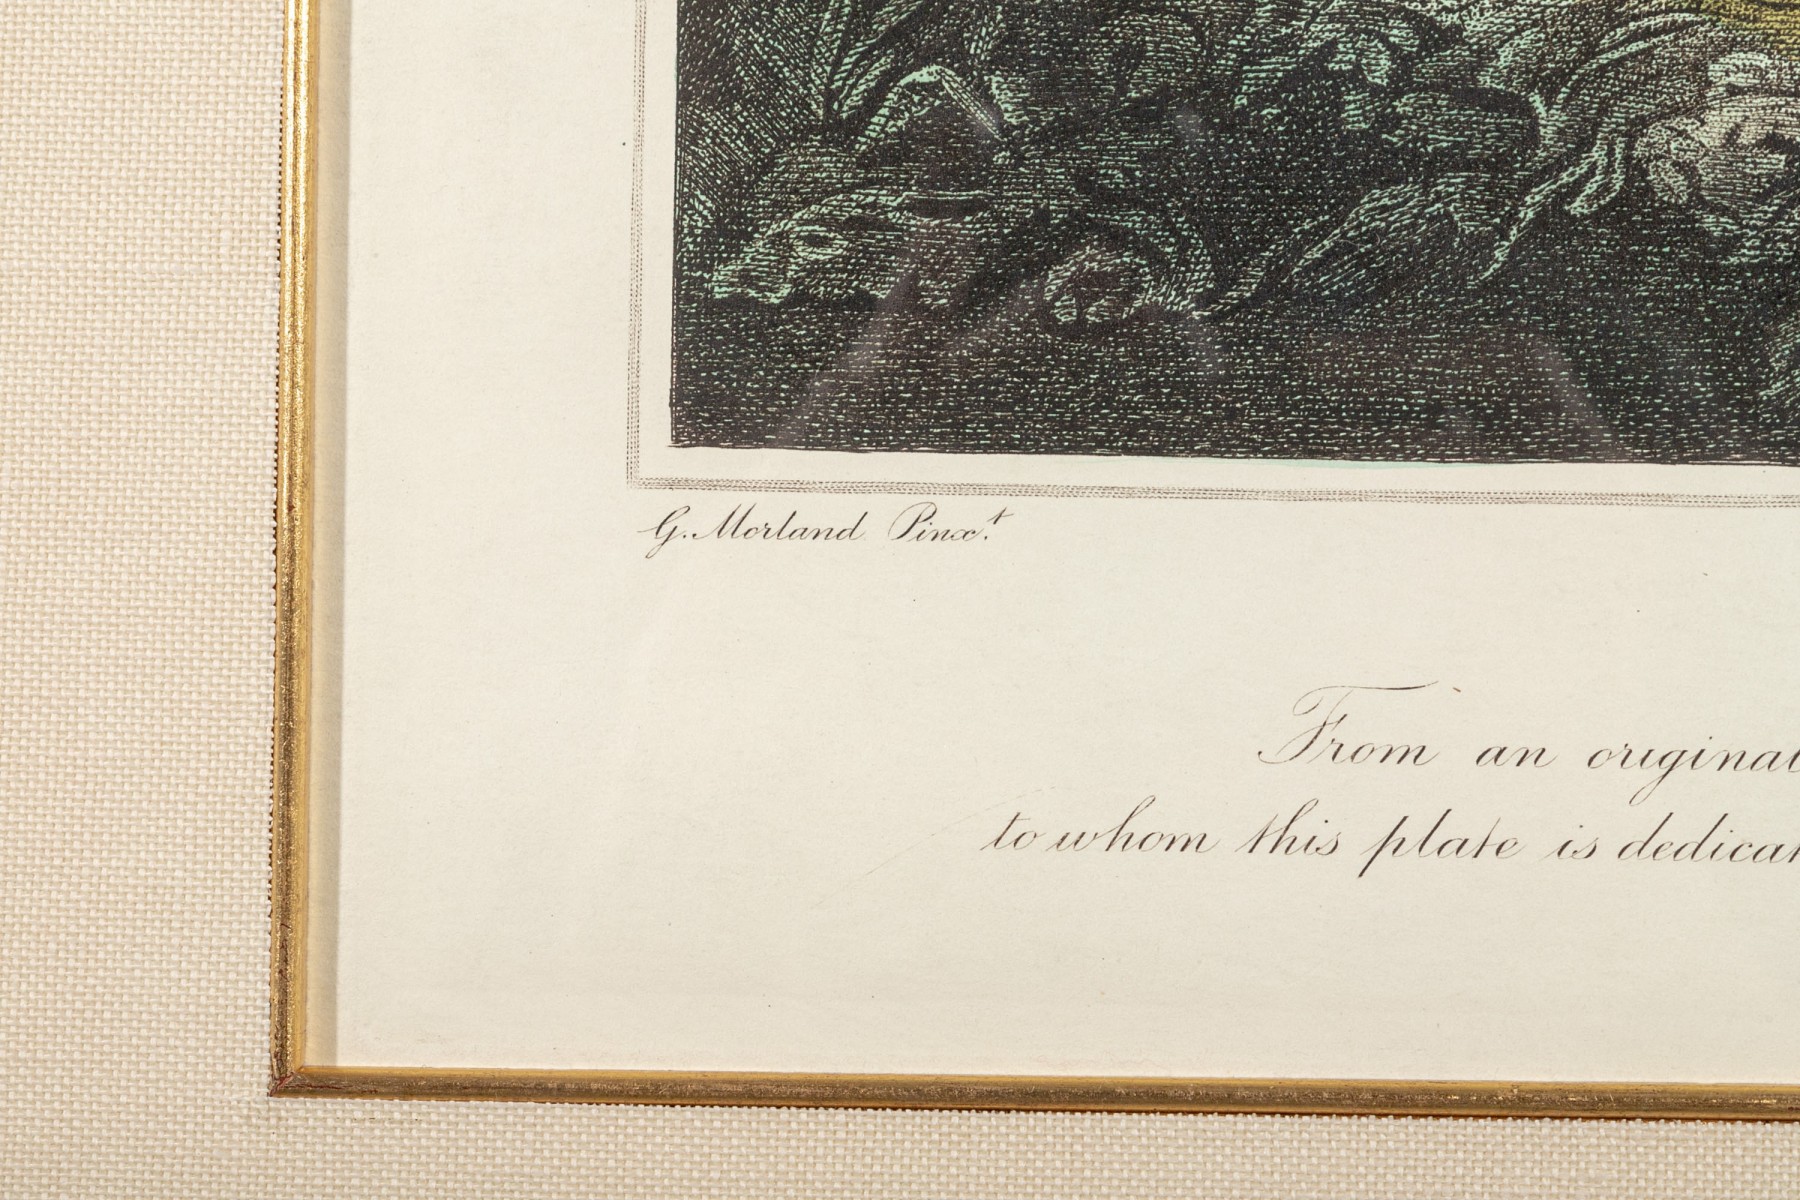 G. Morland Pinx.t
From an original
to whom this plate is dedicat